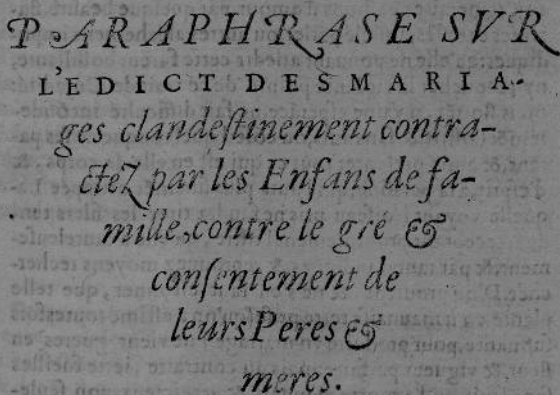 PARAPHRASE SVR
L'EDICT DES MARIA-
ges clandeſtinement contra-
ctez par les Enfans de fa-
mille, contre le gré &
conſentement de
leurs Peres &
meres.